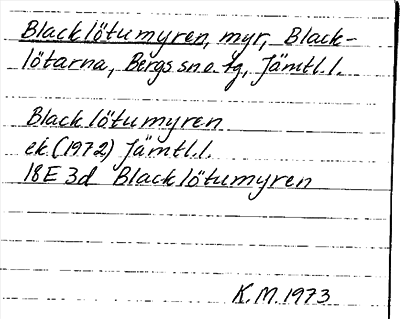 Blacklötumyren, myr, Black-
lötarna, Bergs sn o. tg, Jämtl. l.
Blacklötumyren
ek. (1972) Jämtl. l.
18E 3d Blacklötumyren
K.M. 1973